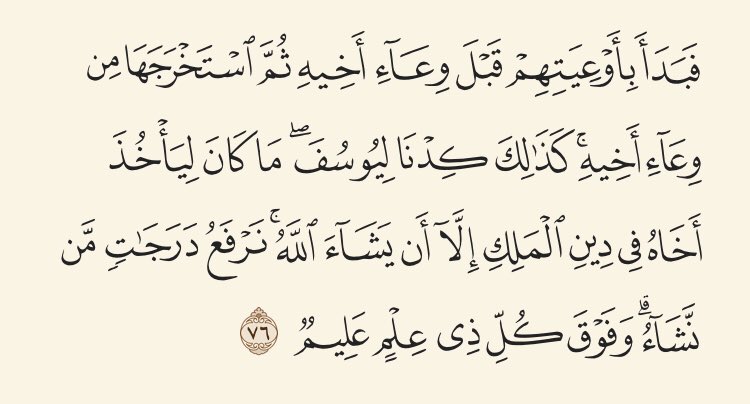 فَبَدَأَ بِأَوۡعِيَتِهِمۡ قَبۡلَ وِعَآءِ أَخِيهِ ثُمَّ ٱسۡتَخۡرَجَهَا مِن
وِعَآءِ أَخِيهِۚ كَذَٰلِكَ كِدۡنَا لِيُوسُفَۖ مَا كَانَ لِيَأۡخُذَ
أَخَاهُ فِي دِينِ ٱلۡمَلِكِ إِلَّآ أَن يَشَآءَ ٱللَّهُۚ نَرۡفَعُ دَرَجَٰتٖ مَّن
نَّشَآءُۗ وَفَوۡقَ كُلِّ ذِي عِلۡمٍ عَلِيمٞ ٧٦